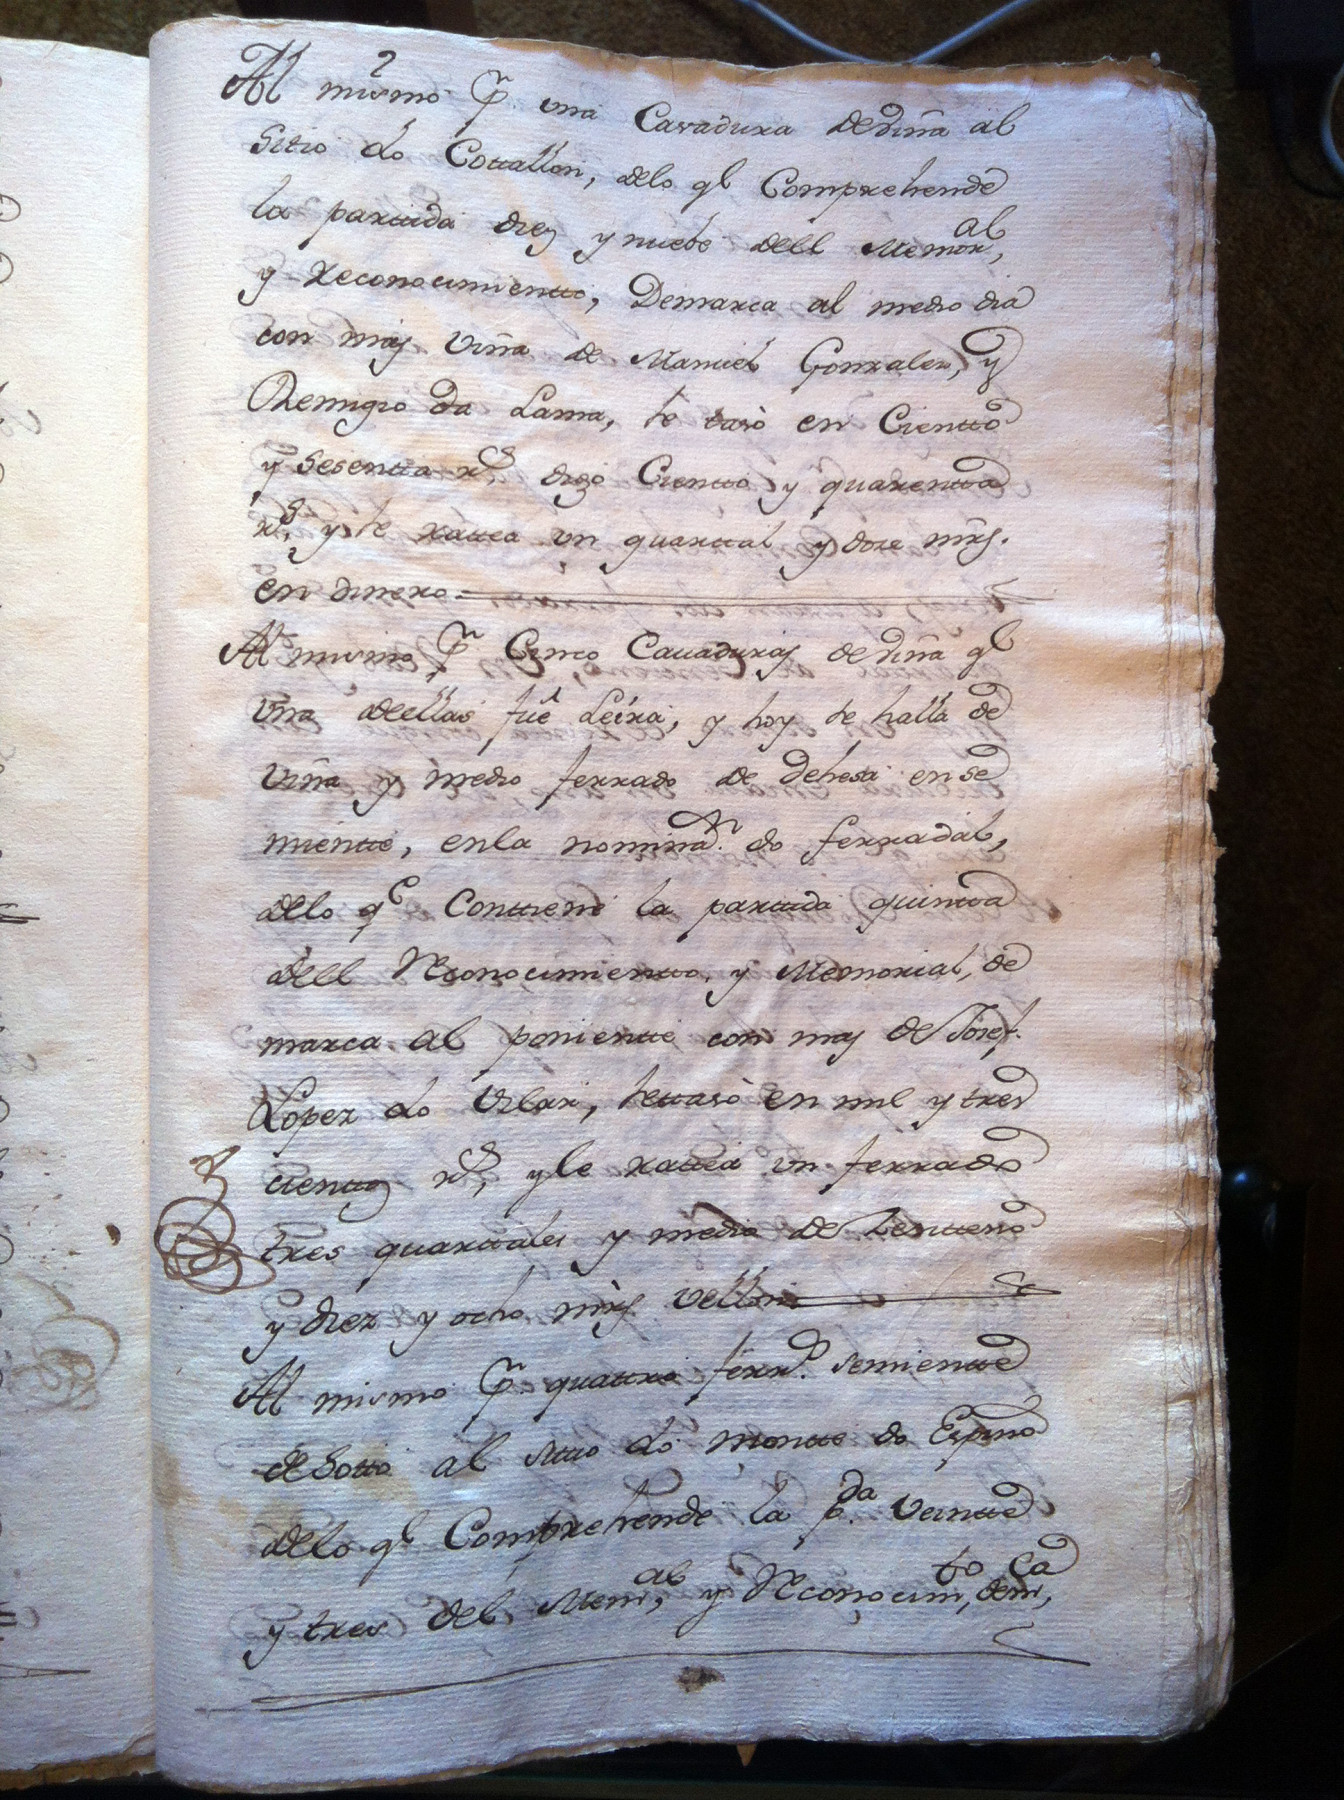 Al mismo Pr. una Cavadura de viña al
Sitio do Cottallon, delo ql Comprehende
la parttida diez y nuebe dell Memoral,
y Reconocimientto, Demarca al medio dia
con mas viña de Manuel Gonzalez, y
Remigio da Lama, se tasò en Cientto
y Sesentta rs, digo Cientto y quarentta
rs, y se rattea un quarttal y doze mrs.
en dinero.
Al mismo Pr. Cinco Cavaduras de viña ql
una dellas fuê Leira, y hoy se halla de
viña y medio ferrado de dehesa en se
mientte, enla nominan. do ferradal,
dello qe Conttiene la parttida quintta
dell Reconocimientto, y Memorial, de
marca al ponientte con mas de Josef.
Lopez do Vilar, settasò en mil y tres
cienttos rs, y le rattea un ferrado
tres quarttales y medio de Zentteno
y diez y ocho mrs vellon
Al mismo Pr. quattro ferrdo. semientte
de Sotto al sitio do montte do Espino
dello ql Comprehende la pda. veintte
y tres del Memal, y Reconocimto, demca,